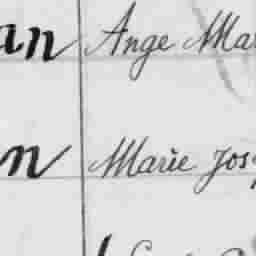 an Ange Ma
n Marie Jos